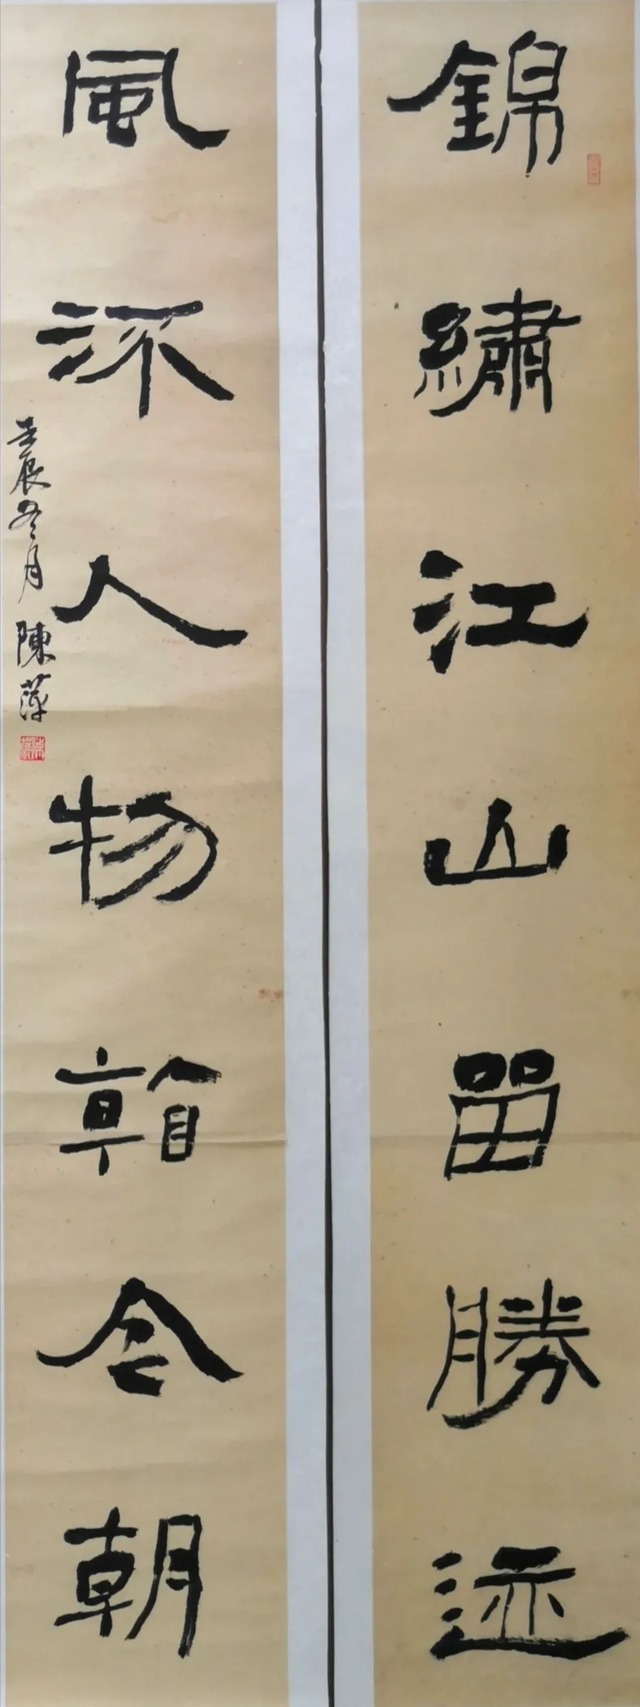 錦繡江山留勝迹
風流人物看今朝
壬辰冬月 陳萍